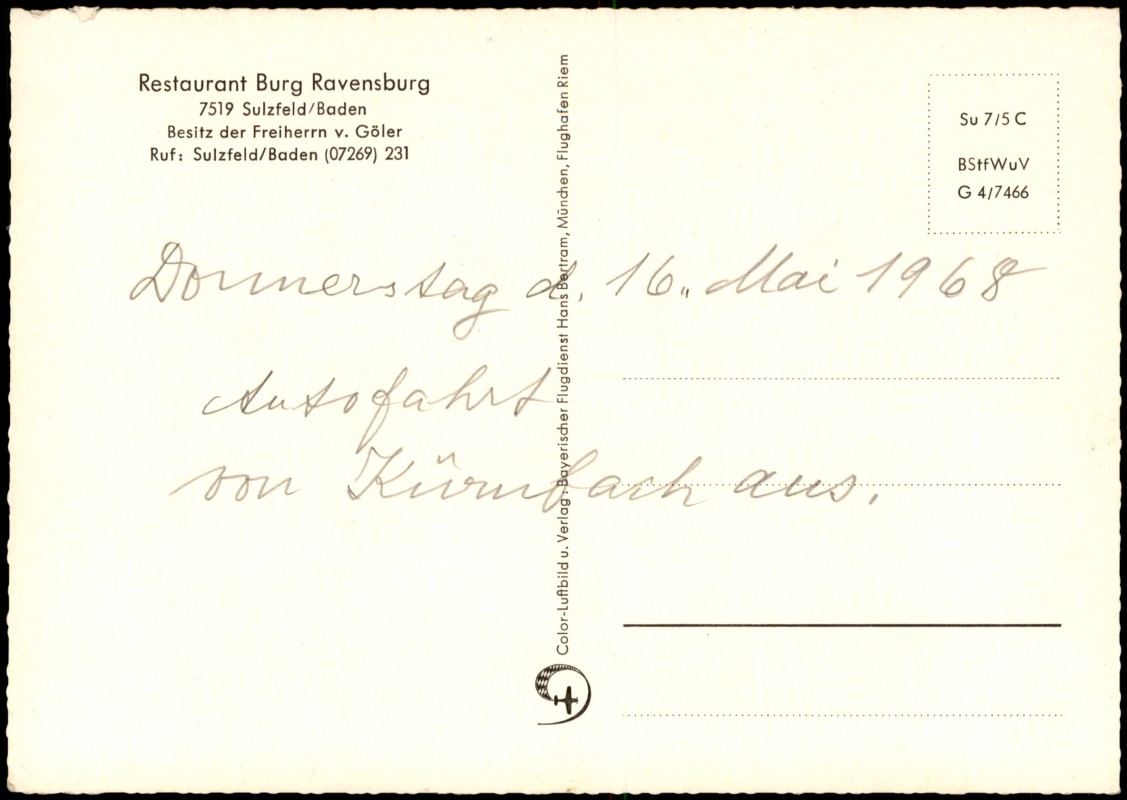 Restaurant Burg Ravensburg
7519 Sulzfeld/Baden
Besitz der Freiherrn v. Göler
Ruf: Sulzfeld/Baden (07269) 231
Su 7/5 C
BStfWuV
G 4/7466
Donnerstag d. 16. Mai 1968
Autofahrt
von Kürnbach aus.
Color-Luftbild u. Verlag: Bayerischer Flugdienst Hans Bertram, München, Flughafen Riem